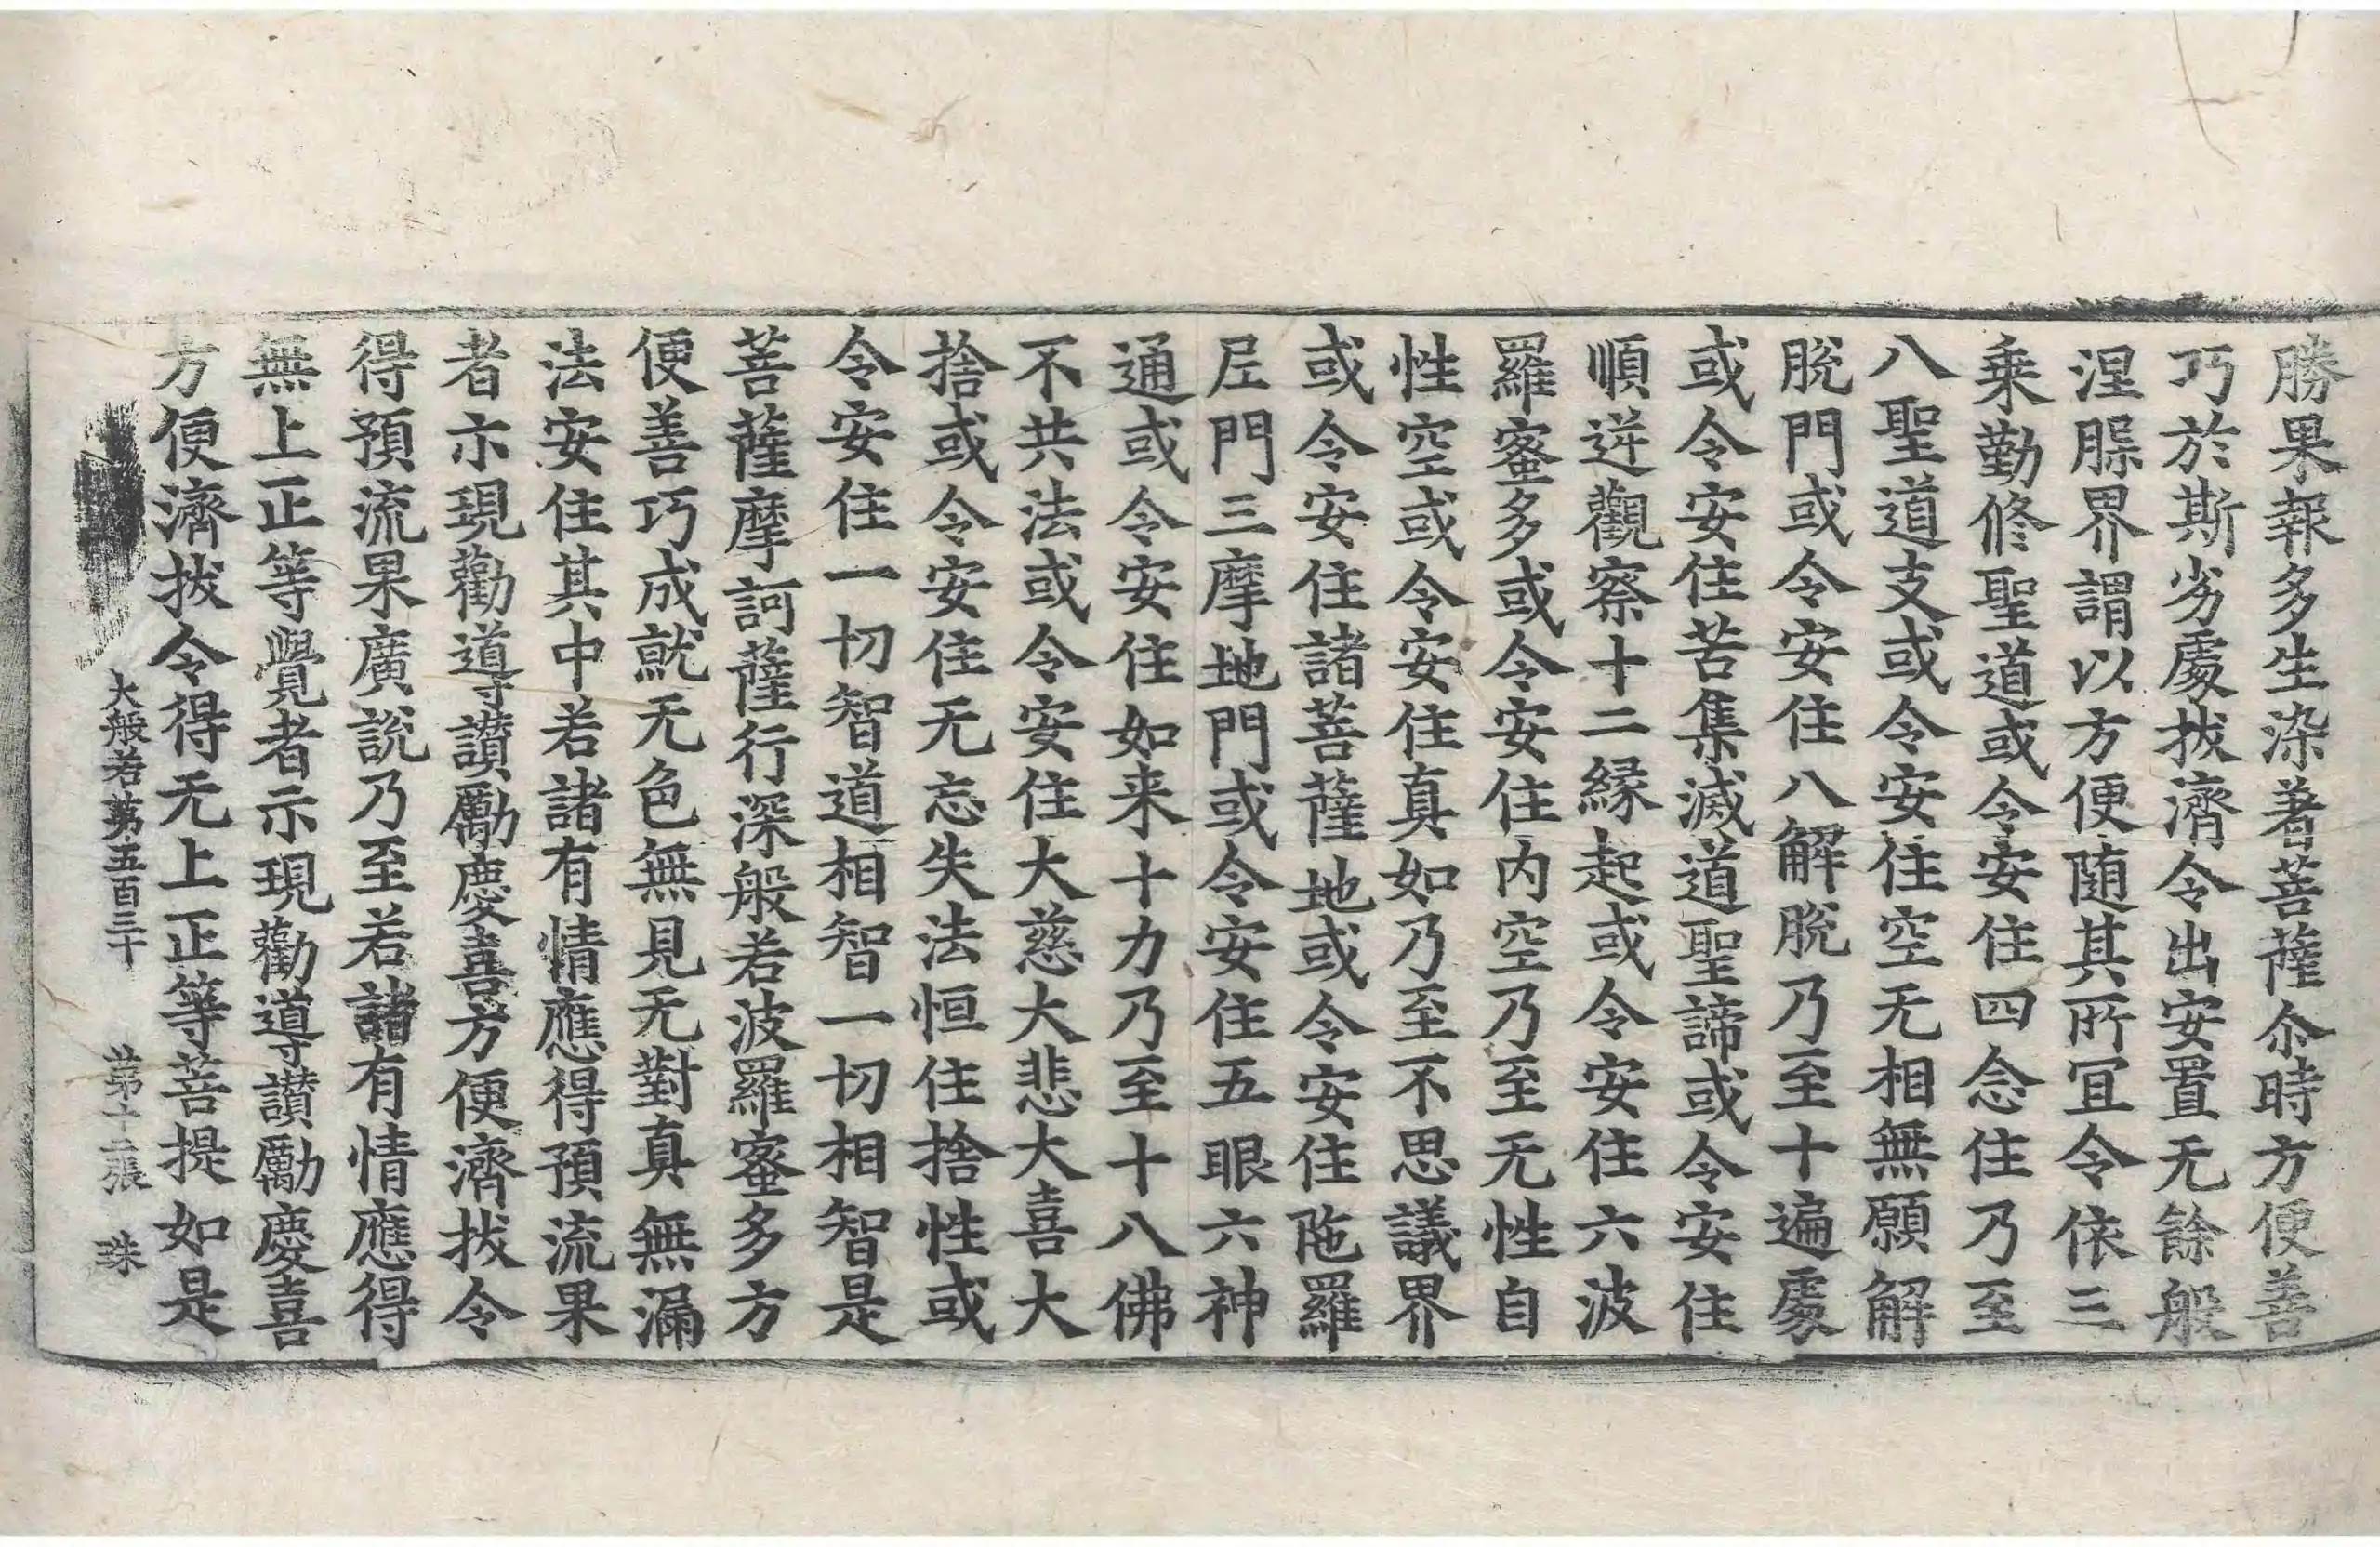 勝果報多生染著菩薩尒時方便善
巧於斯劣處拔濟令出安置无餘般
涅脲界謂以方便随其所冝令依三
乗勤修聖道或令安住四念住乃至
八聖道支或令安住空无相無願解
脫門或令安住八解脫乃至十遍處
或令安住苦集滅道聖諦或令安住
順逆觀察十二縁起或令安住六波
羅蜜多或令安住内空乃至无性自
性空或令安住真如乃至不思議界
或令安住諸菩薩地或令安住陁羅
尼門三摩地門或令安住五眼六神
通或令安住如来十力乃至十八佛
不共法或令安住大慈大悲大喜大
捨或令安住无忘失法恒住捨性或
令安住一切智道相智一切相智是
菩薩摩訶薩行深般若波羅蜜多方
便善巧成就无色無見无對真無漏
法安住其中若諸有情應得預流果
者示現勸導讃勵慶喜方便濟拔令
得預流果廣說乃至若諸有情應得
無上正等覺者示現勸導讃勵慶喜
方便濟拔令得无上正等菩提如是
大般若第五百三十 第十二張 珠